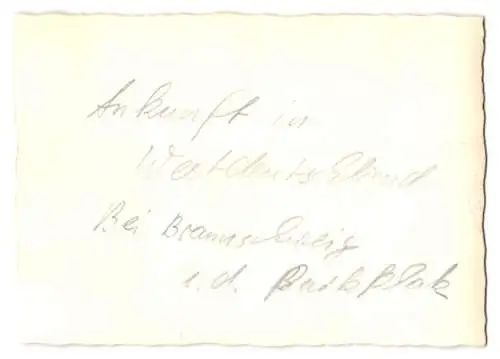 Ankunft in
Westdeutschland
Bei Braunschweig
i. d.